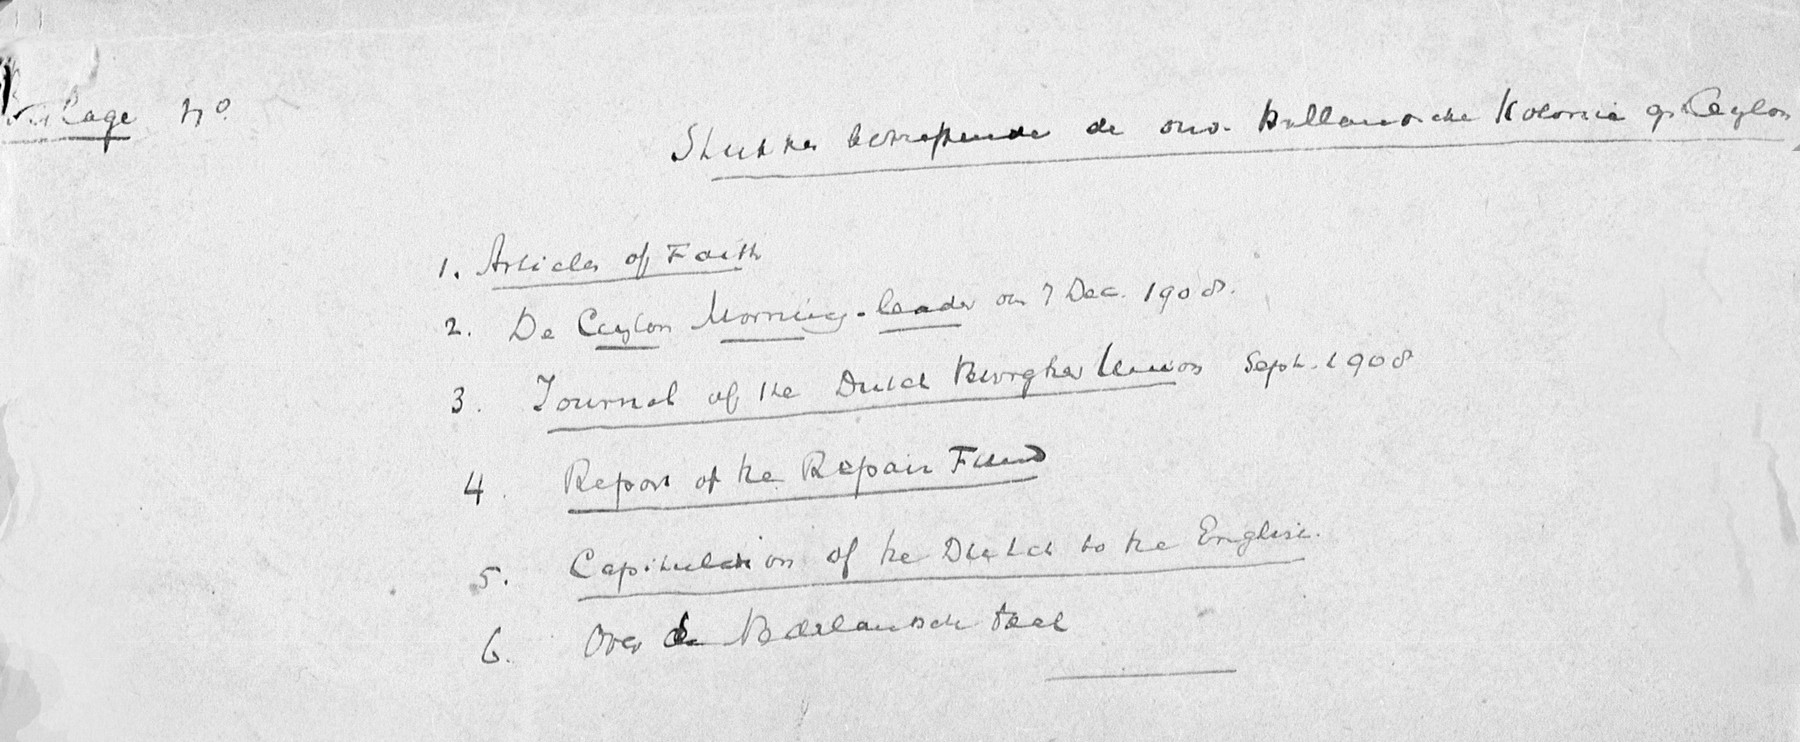 Bijlage No.
Stukken betreffende de oud-Hollandsche Kolonie op Ceylon
1. Articles of Faith
2. De Ceylon Morning-leader van 7 Dec. 1908.
3. Journal of the Dutch Burgher Union Sept. 1908
4. Report of the Repair Fund
5. Capitulation of the Dutch to the English.
6. Over de taal